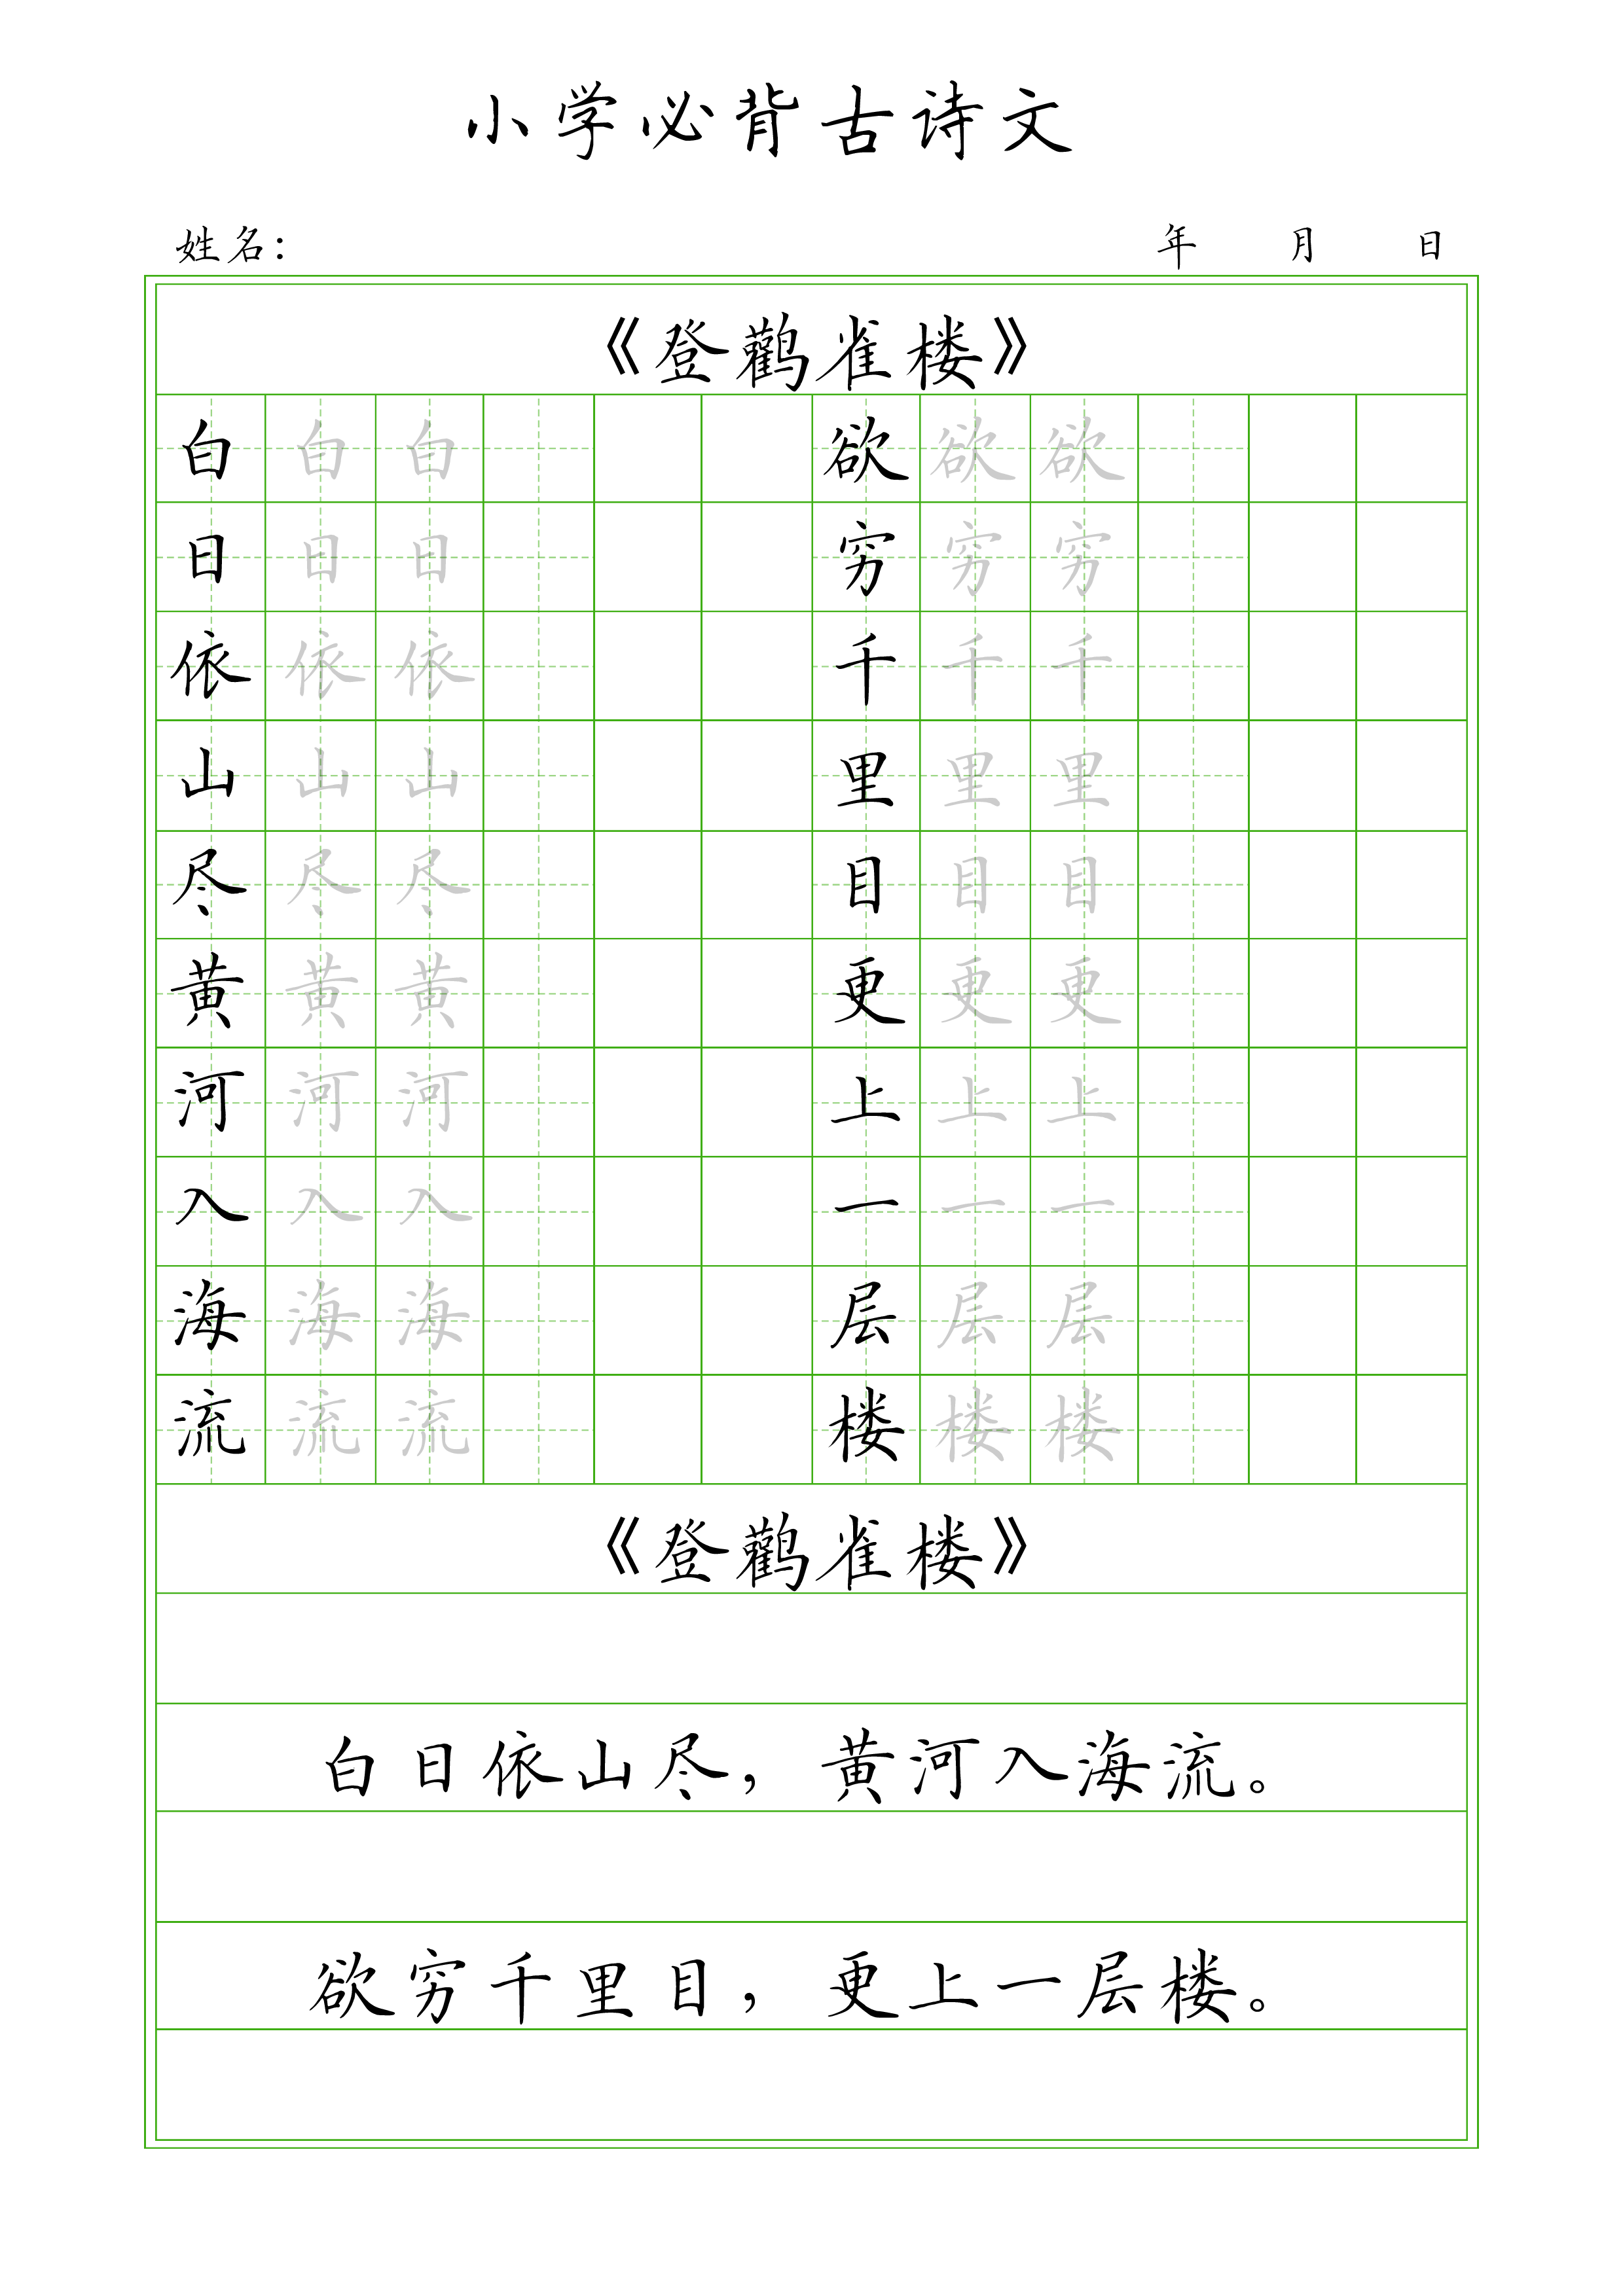 小学必背古诗文
姓名： 年 月 日
《登鹳雀楼》
白 白 白 欲 欲 欲
日 日 日 穷 穷 穷
依 依 依 千 千 千
山 山 山 里 里 里
尽 尽 尽 目 目 目
黄 黄 黄 更 更 更
河 河 河 上 上 上
入 入 入 一 一 一
海 海 海 层 层 层
流 流 流 楼 楼 楼
《登鹳雀楼》
白日依山尽，黄河入海流。
欲穷千里目，更上一层楼。